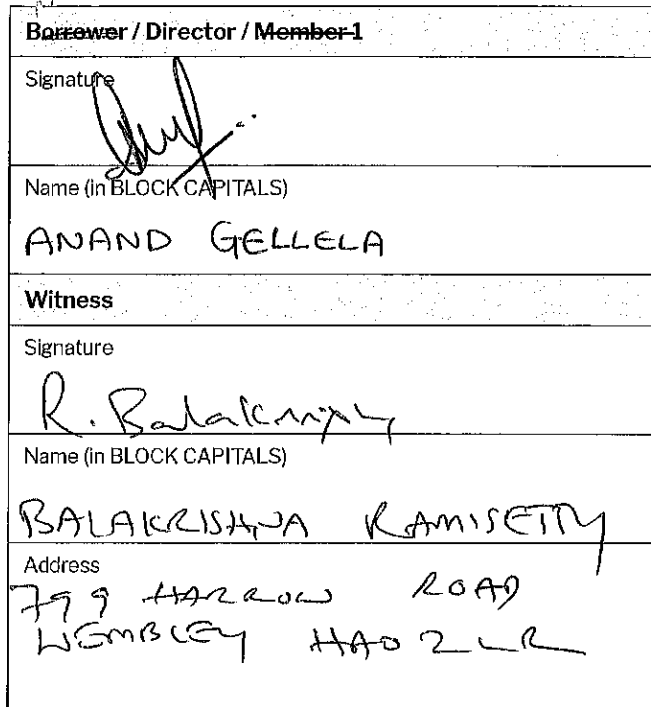 Borrower / Director / Member 1
Signature
Name (in BLOCK CAPITALS)
ANAND GELLELA
Witness
Signature
R. Balakrishna
Name (in BLOCK CAPITALS)
BALAKRISHNA RAMISETTY
Address
799 HARROW ROAD
WEMBLEY HA0 2LR